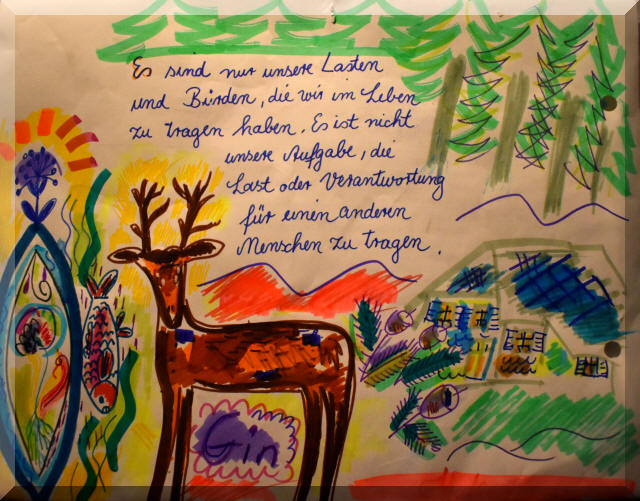 Es sind nur unsere Lasten
und Bürden, die wir im Leben
zu tragen haben. Es ist nicht
unsere Aufgabe, die
Last oder Verantwortung
für einen anderen
Menschen zu tragen.
Gin